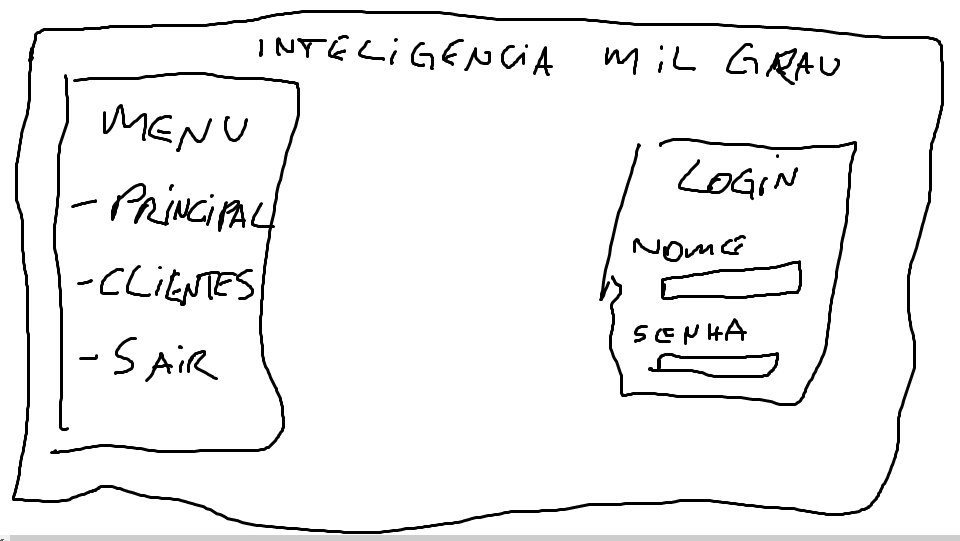 INTELiGENCiA MiL GRAU
MENU
- PRiNCiPAL
- CLiENTES
- SAiR
LOGiN
NOME
SENHA